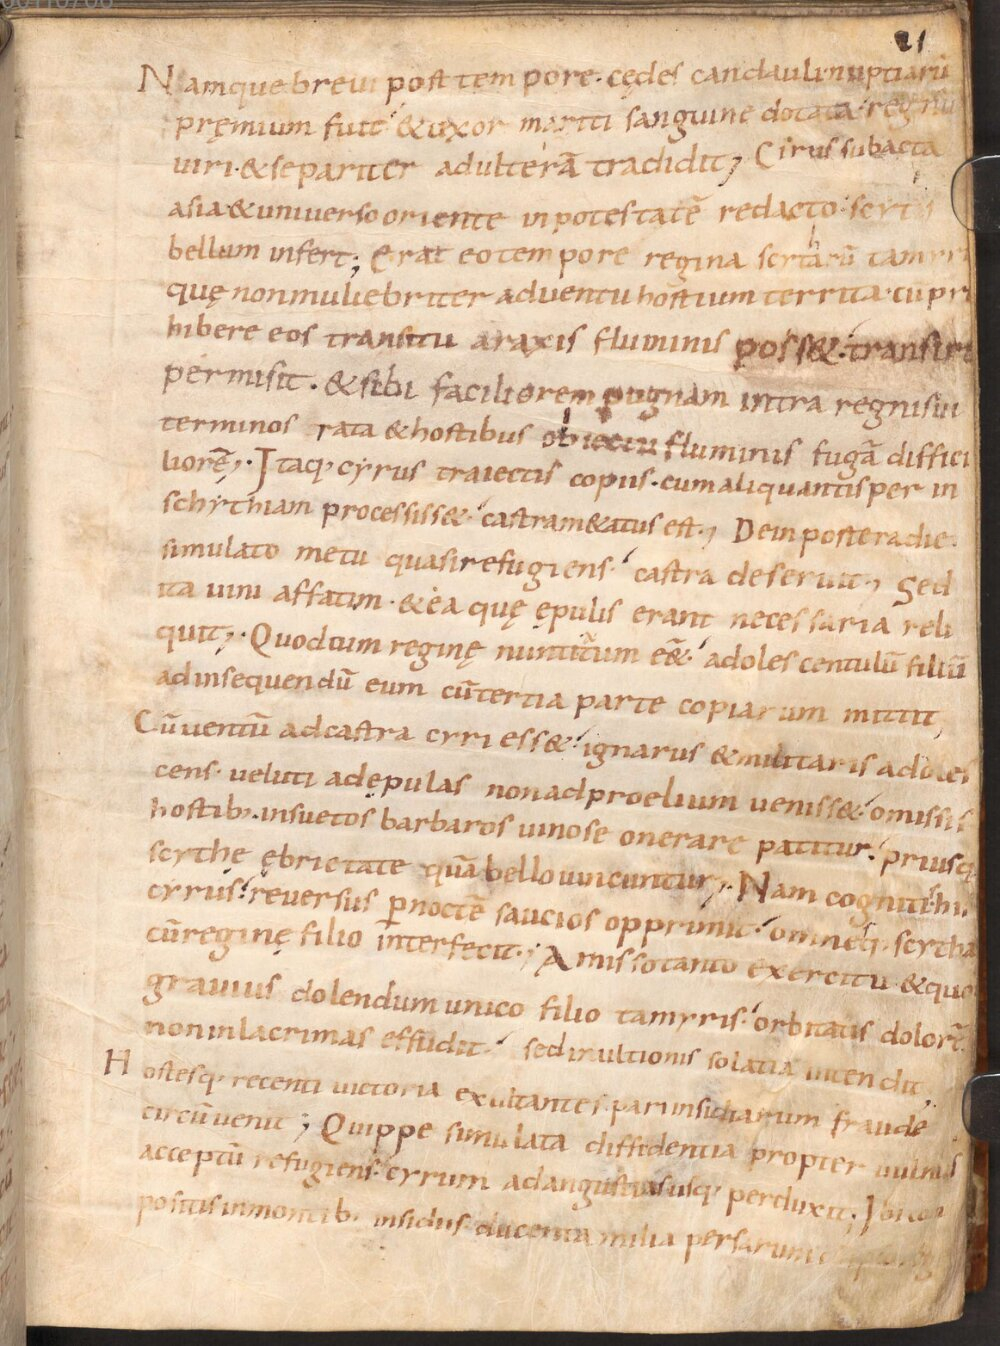 21
Namque brevi post tempore · cędes candauli nuptiarũ
pręmium fuit & uxor mariti sanguine dotata regnũ
viri · & se pariter adulterã tradidit; Cirus subacta
asia & universo oriente in potestatẽ redacto · scytis
bellum infert; Erat eo tempore regina scytharũ tamyri
quę non muliebriter adventu hostium territa · cũ pro
hibere eos transitu araxis fluminis poss& · transire
permisit · & sibi faciliorem pugnam intra regni sui
terminos rata & hostibus obiectu fluminis fugã diffici
liorẽ; Itaq; cyrus traiectis copiis · cum aliquantisper in
schythiam processiss& · castram&atus est; Dein postera die
simulato metu quasi refugiens · castra deseruit; Sed
ita vini affatim · & ea quę ępulis erant necessaria reli
quit; Quod cum reginę nuntiatum eẽ& · adolescentulũ filiũ
ad insequendũ eum cũ tertia parte copiarum mittit,
Cũ ventũ ad castra cyri ess& · ignarus & militaris adoles
cens · veluti ad ępulas non ad proelium veniss& · omissis
hostib; · insuetos barbaros vino se onerare patitur · priusq;
scythę ębrietate quã bello vincuntur; Nam cognitis his
cyrus · reversus p noctẽ saucios opprimit · omnesq; scythas
cũ reginę filio interfecit; Amisso tanto exercitu · & quod
gravius dolendum unico filio tamyris · orbitatis dolorẽ
non in lacrimas effudit · sed in ultionis solatia intendit,
Hostesq; recenti victoria exultantes · pari insidiarum fraude
circũvenit; Quippe simulata diffidentia propter vulnus
acceptũ refugiens · cyrum ad angustias usq; perduxit; Ibi con
positis in montib; insidiis · ducenta milia persarum